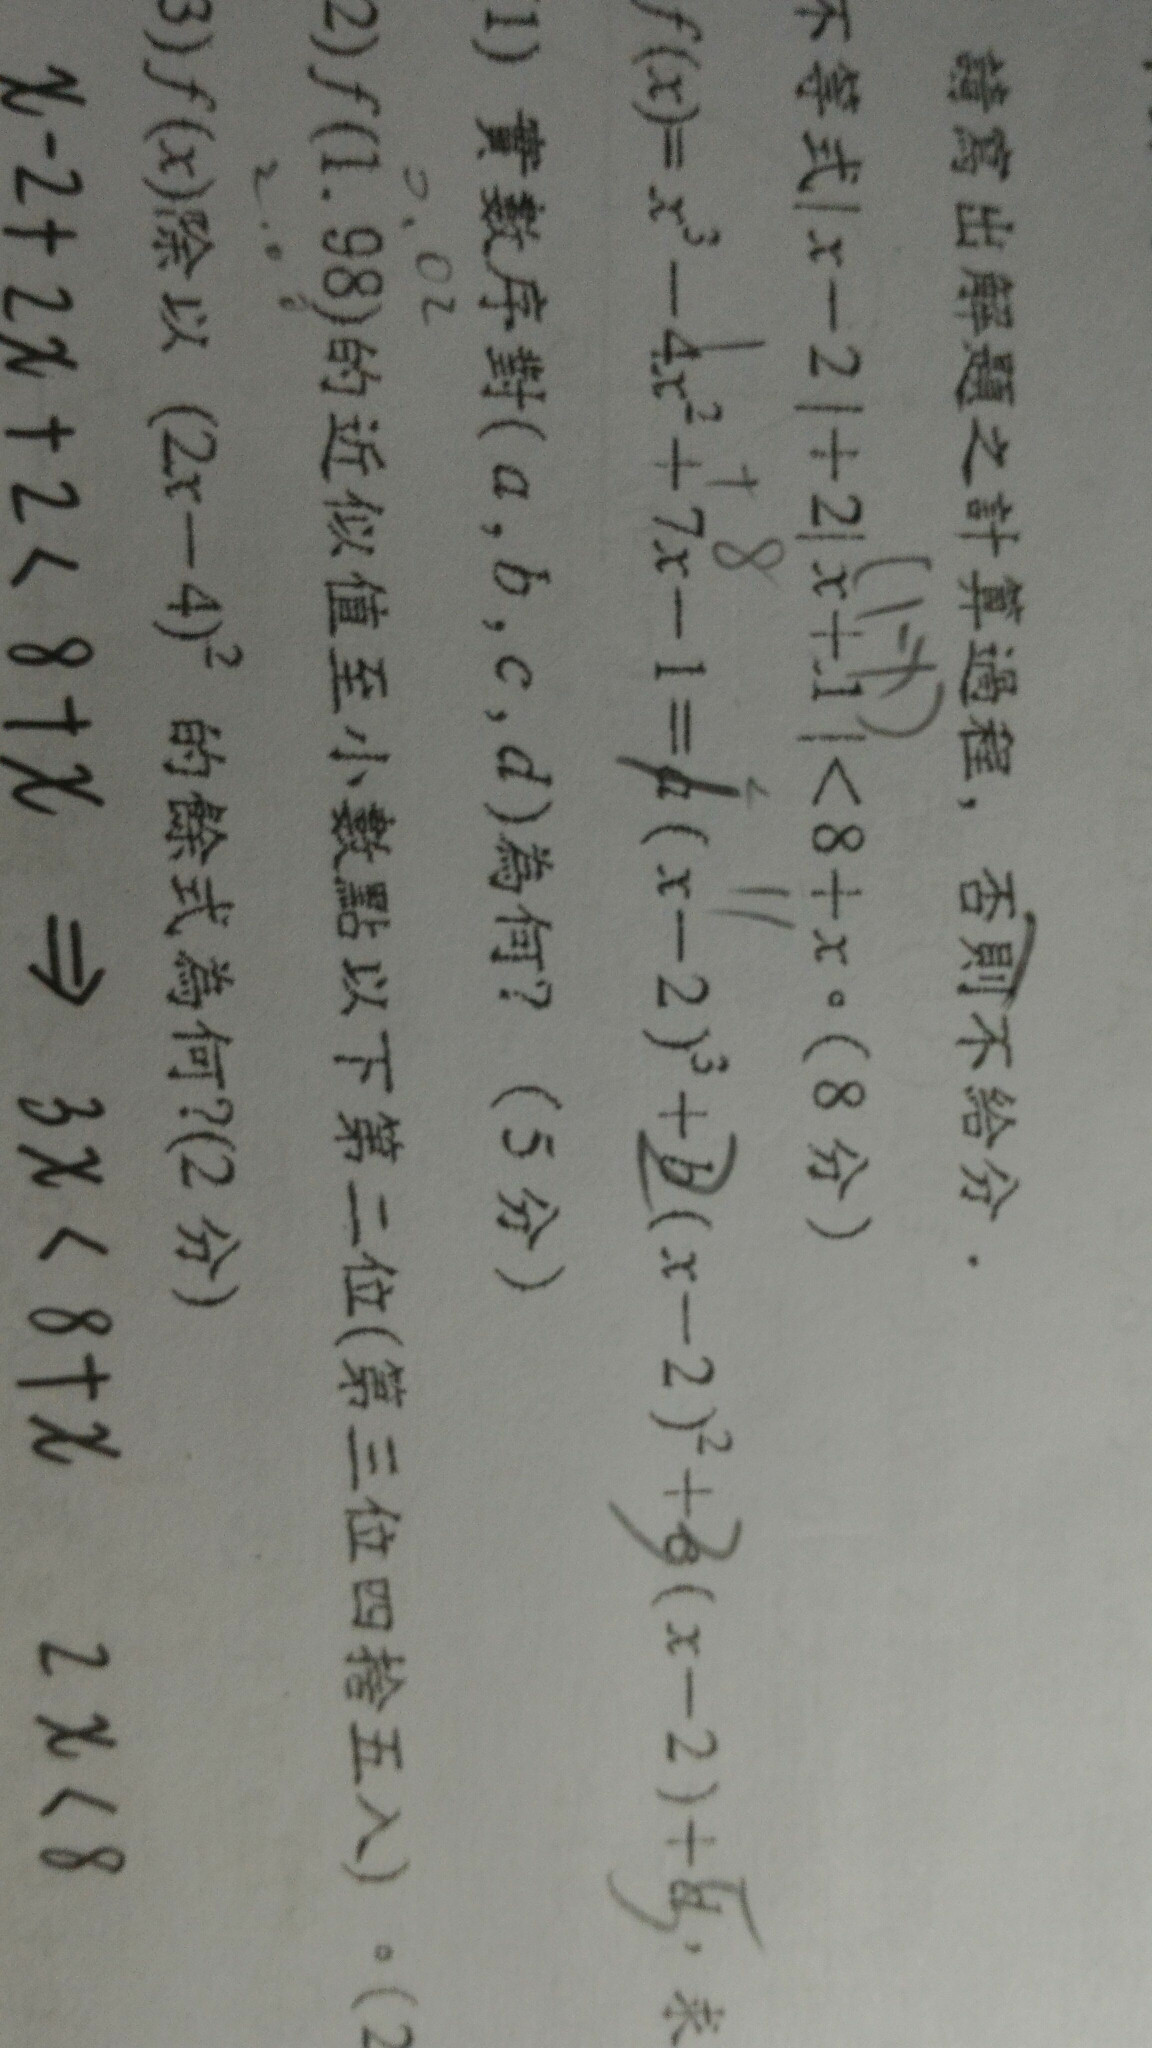 請寫出解題之計算過程，否則不給分．
不等式|x－2|+2|x+1|<8+x。(8分)
(1-x)
f(x)=x³－4x²+7x－1=a(x－2)³+b(x－2)²+c(x－2)+d，求
1) 實數序對(a,b,c,d)為何? (5分)
2) f(1.98)的近似值至小數點以下第二位(第三位四捨五入)。(2
0.02
3) f(x)除以 (2x－4)² 的餘式為何?(2分)
x-2+2x+2<8+x ⇒ 3x<8+x 2x<8